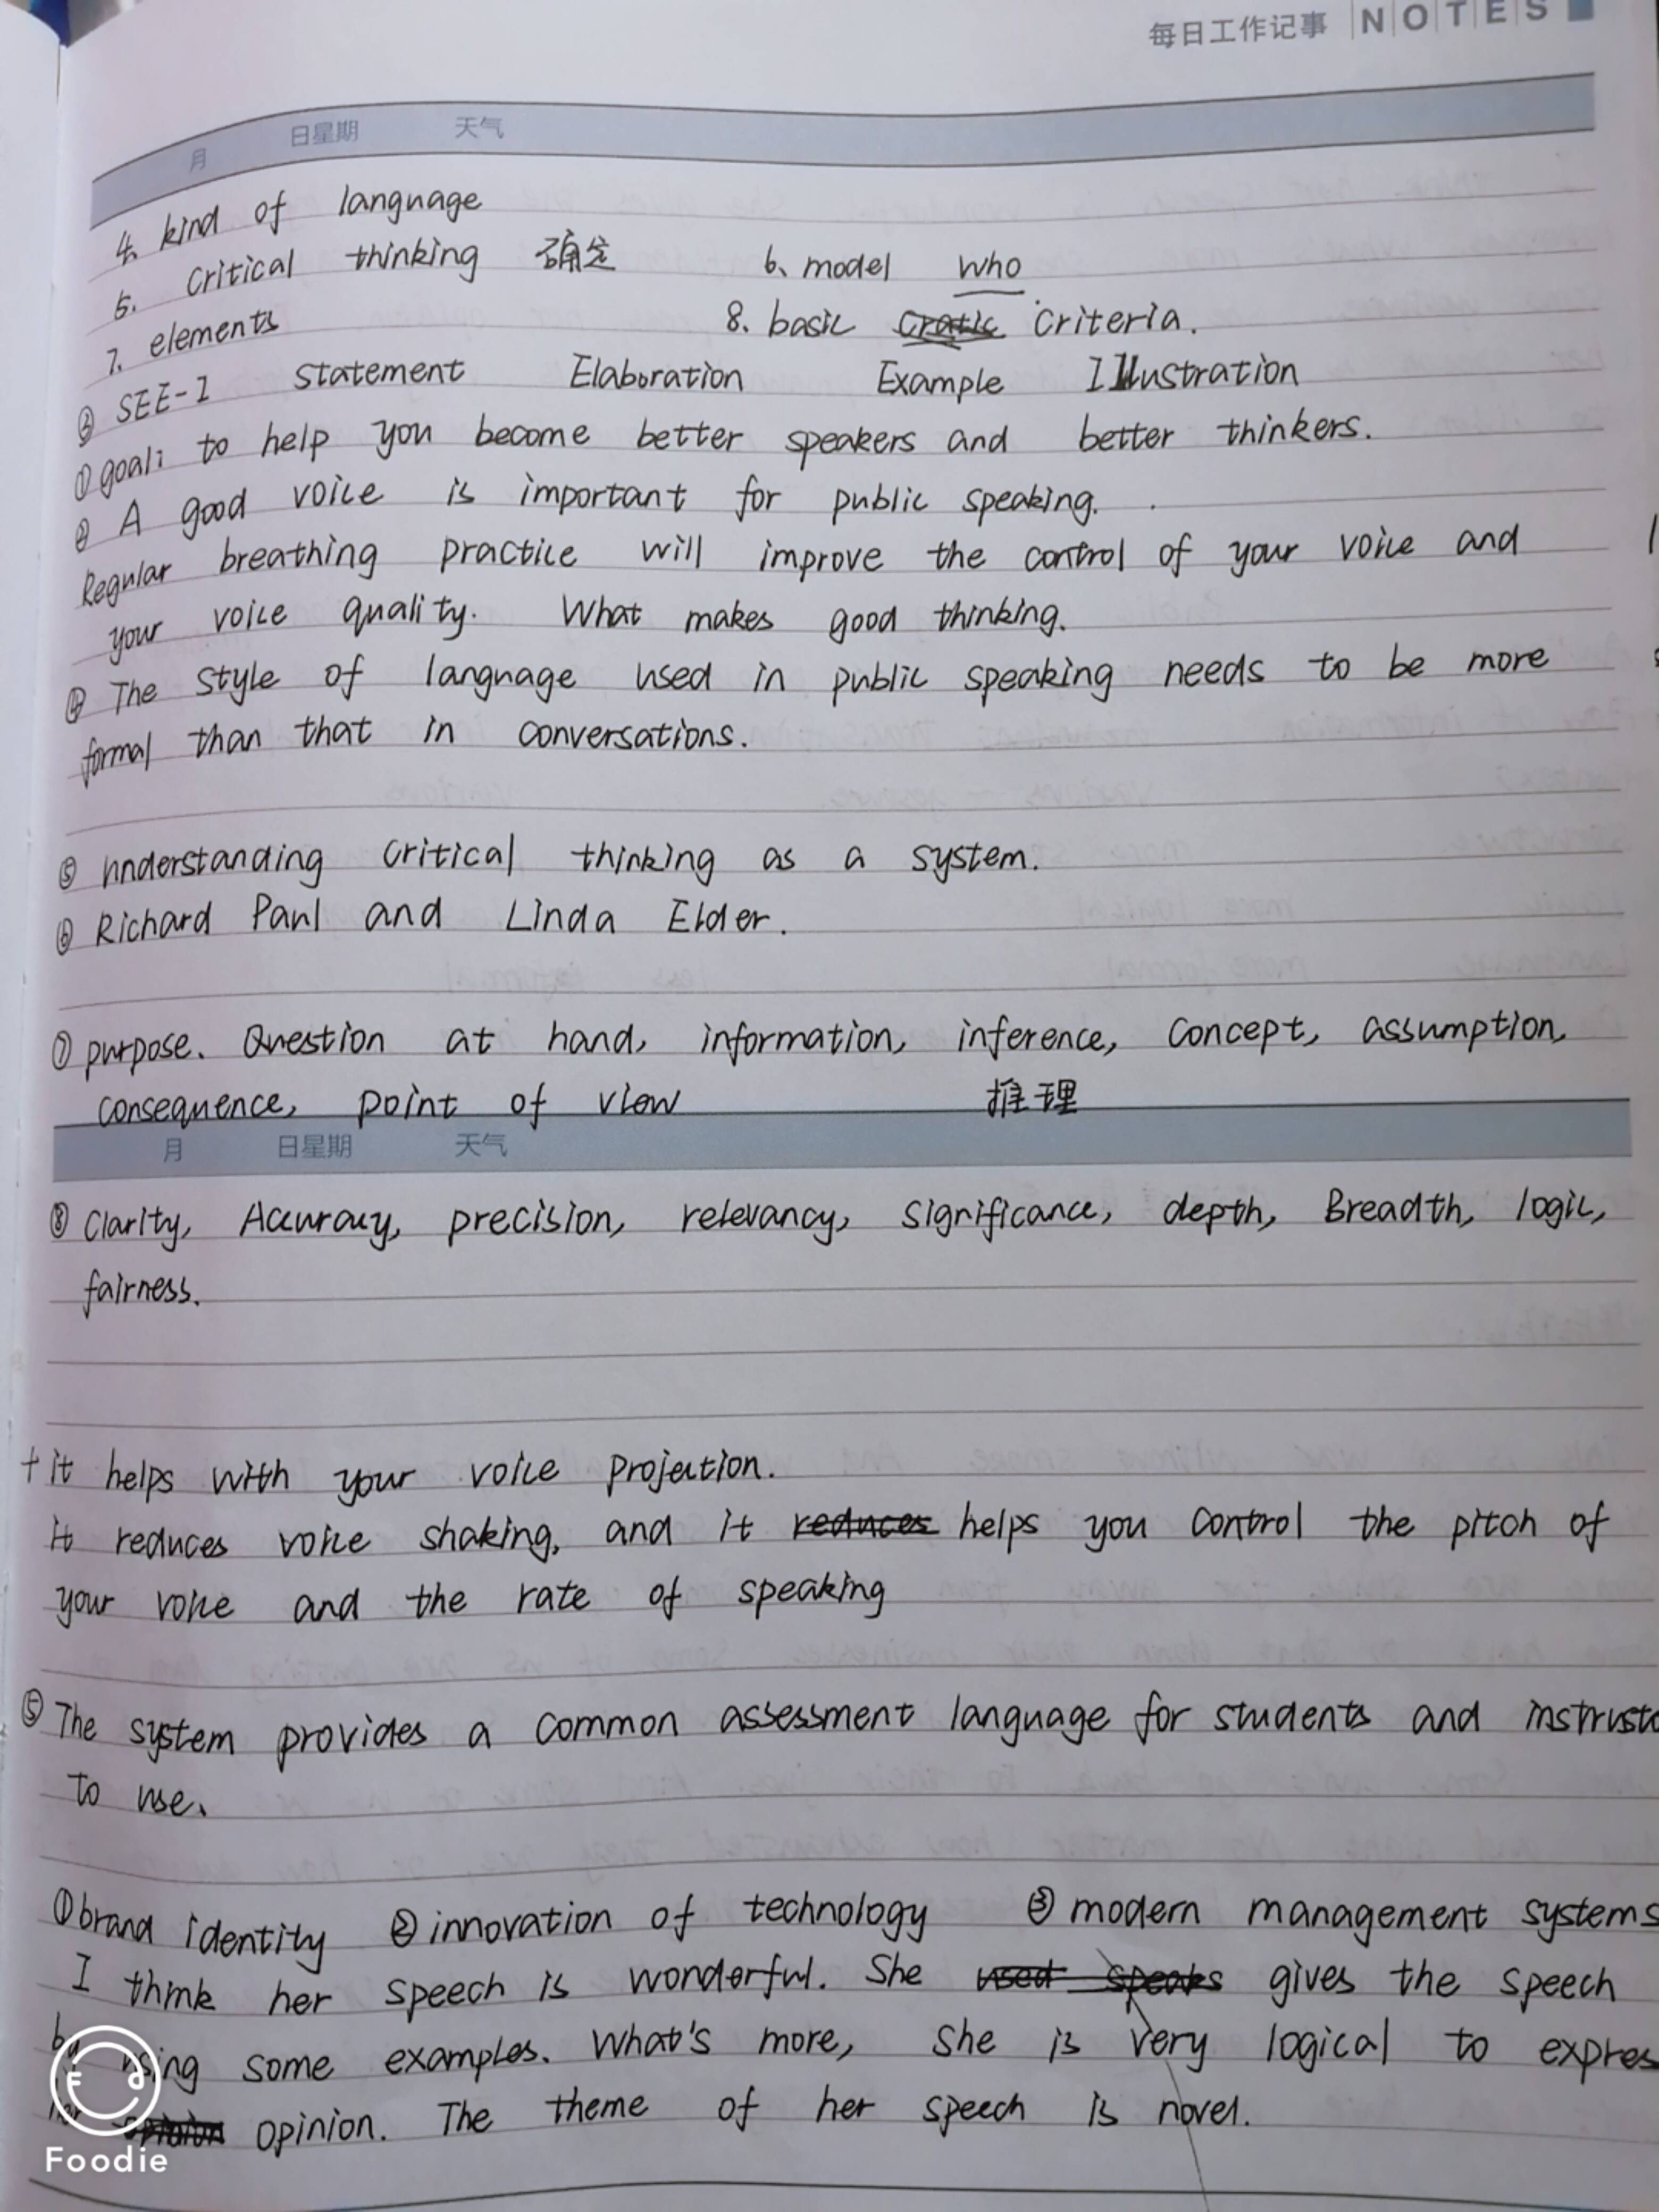 每日工作记事 NOTES
月 日星期 天气
4. kind of language
5. critical thinking 确定 6、model who
7. elements 8. basic criteria.
③ SEE-I Statement Elaboration Example Illustration
① goal: to help you become better speakers and better thinkers.
② A good voice is important for public speaking.
Regular breathing practice will improve the control of your voice and
your voice quality. What makes good thinking.
④ The style of language used in public speaking needs to be more
formal than that in conversations.
⑤ understanding critical thinking as a system.
⑥ Richard Paul and Linda Elder.
⑦ purpose. Question at hand, information, inference, concept, assumption,
consequence, point of view 推理
月 日星期 天气
⑧ Clarity, Accuracy, precision, relevancy, significance, depth, Breadth, logic,
fairness.
+ it helps with your voice projection.
it reduces voice shaking, and it reduces helps you control the pitch of
your voice and the rate of speaking
⑤ The system provides a common assessment language for students and instrusto
to use.
① brand identity ② innovation of technology ③ modern management systems
I think her speech is wonderful. She used speaks gives the speech
by using some examples. What's more, she is very logical to expres
her opinion opinion. The theme of her speech is novel.
Foodie